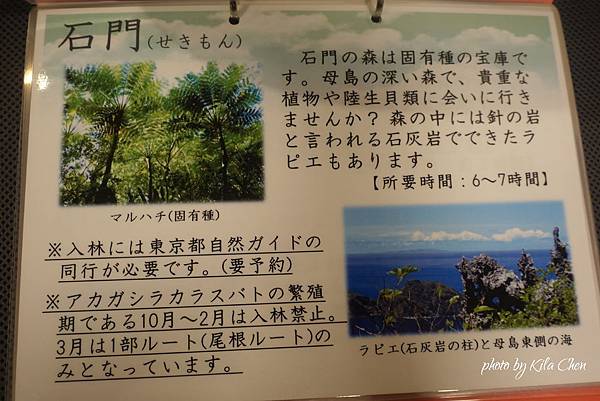 石門(せきもん)
石門の森は固有種の宝庫で
す。母島の深い森で、貴重な
植物や陸生貝類に会いに行き
ませんか？ 森の中には針の岩
と言われる石灰岩でできたラ
ピエもあります。
【所要時間：6～7時間】
マルハチ(固有種)
※入林には東京都自然ガイドの
同行が必要です。(要予約)
※アカガシラカラスバトの繁殖
期である10月～2月は入林禁止。
3月は1部ルート(尾根ルート)の
みとなっています。
ラピエ(石灰岩の柱)と母島東側の海
photo by Kila Chen